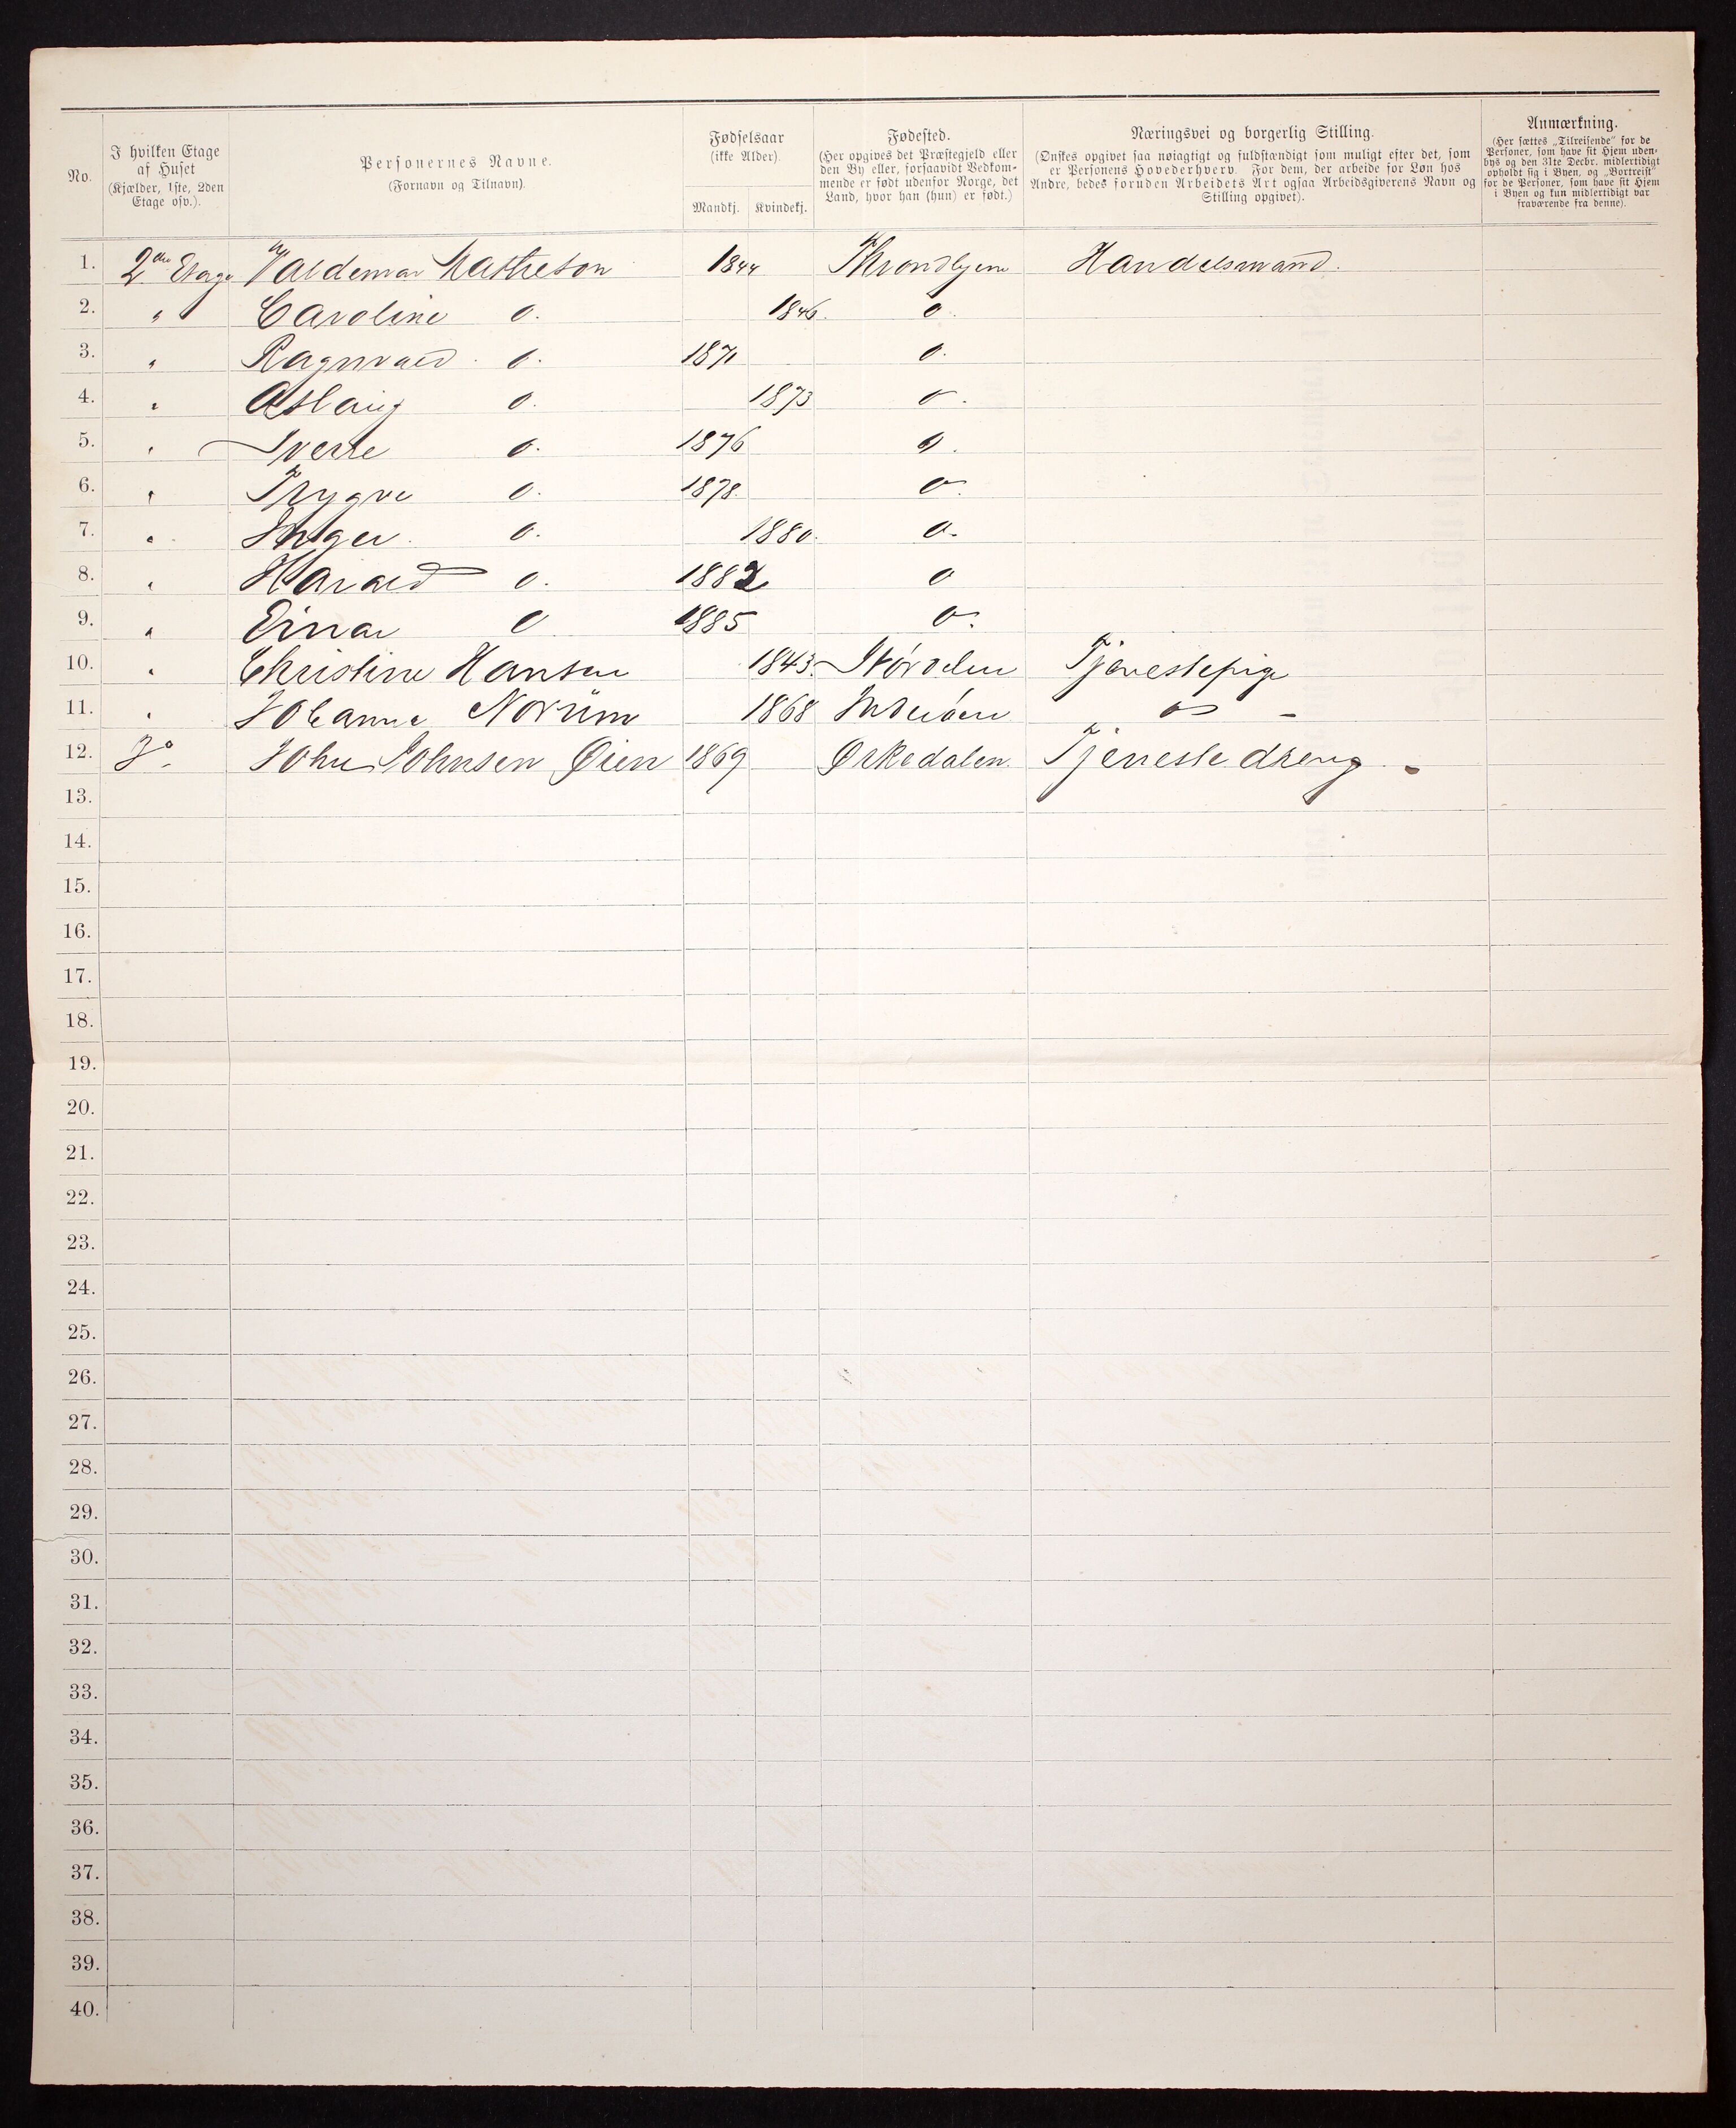 No.
I hvilken Etage
af Huset
(Kjælder, 1ste, 2den
Etage osv.).
Personernes Navne.
(Fornavn og Tilnavn).
Fødselsaar
(ikke Alder).
Mandkj. Kvindekj.
Fødested.
(Her opgives det Præstegjeld eller
den By eller, forsaavidt Vedkom-
mende er født udenfor Norge, det
Land, hvor han (hun) er født.)
Næringsvei og borgerlig Stilling.
(Ønskes opgivet saa nøiagtigt og fuldstændigt som muligt efter det, som
er Personens Hovederhverv. For dem, der arbeide for Løn hos
Andre, bedes foruden Arbeidets Art ogsaa Arbeidsgiverens Navn og
Stilling opgivet).
Anmærkning.
(Her sættes „Tilreisende“ for de
Personer, som have sit Hjem uden-
bys og den 31te Decbr. midlertidigt
opholdt sig i Byen, og „Bortreist“
for de Personer, som have sit Hjem
i Byen og kun midlertidigt var
fraværende fra denne).
1. 2den Etage Valdemar 1844 Throndhjem Handelsmand.
2. " Caroline o. 1846. o.
3. " Ragnvald o. 1871 o.
4. " Aslaug o. 1873 o.
5. " Sverre o. 1876 o.
6. " Trygve o. 1878. o.
7. " Inger. o. 1880. o.
8. " Harald o. 1882 o
9. " Einar o 1885 o.
10. " Christine Hansen 1843. Størdalen Tjenestepige
11. " Johanna Norum 1868 Inderøen " o -
12. Johu Johnsen Øien 1869 Ørkedalen. Tjenestedreng. -
13.
14.
15.
16.
17.
18.
19.
20.
21.
22.
23.
24.
25.
26.
27.
28.
29.
30.
31.
32.
33.
34.
35.
36.
37.
38.
39.
40.